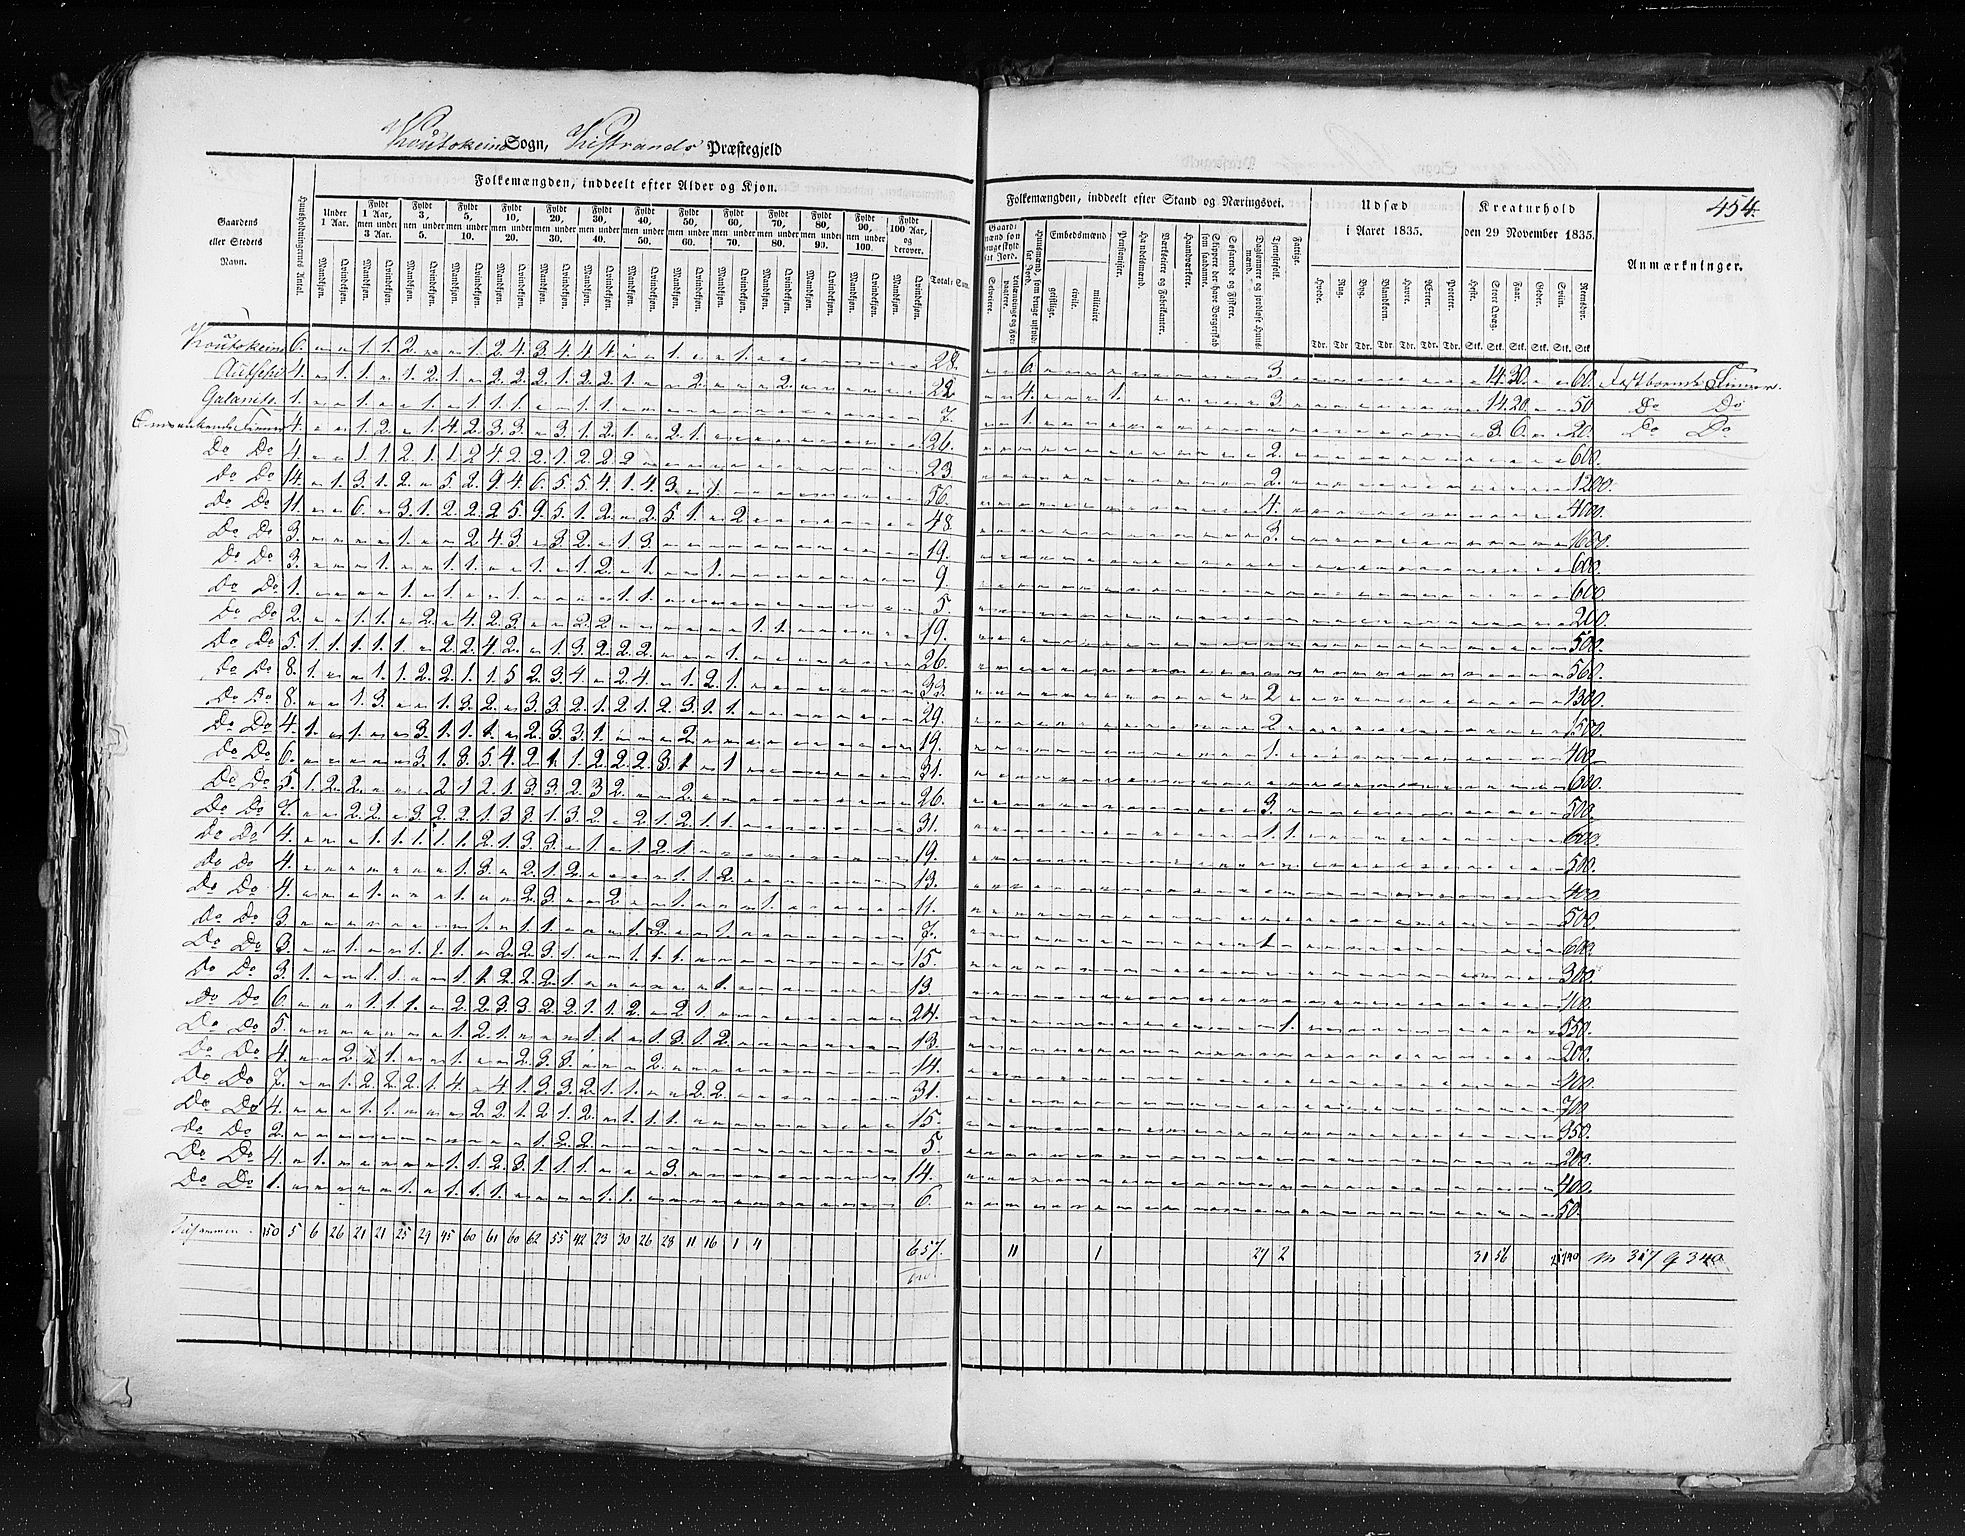 Koutokeino Sogn, Kistrands Præstegjeld
454.
Gaardens eller Stedets Navn.
Huusholdningernes Antal.
Folkemængden, inddeelt efter Alder og Kjøn.
Under 1 Aar.
Fyldt 1 Aar, men under 3 Aar.
Fyldt 3, men under 5.
Fyldt 5, men under 10.
Fyldt 10, men under 20.
Fyldt 20, men under 30.
Fyldt 30, men under 40.
Fyldt 40, men under 50.
Fyldt 50, men under 60.
Fyldt 60, men under 70.
Fyldt 70, men under 80.
Fyldt 80, men under 90.
Fyldt 90, men under 100.
Fyldt 100 Aar, og derover.
Mandkjøn. Qvindekjøn.
Total-Sum.
Folkemængden, inddeelt efter Stand og Næringsvei.
Embedsmænd
geistlige.
civile.
militaire
Pensionister.
Handelsmænd.
Værkseiere og Fabrikanter.
Haandværkere.
Skippere der have Borgerskab som saadanne.
Søfarende og Fiskere.
Daglønnere og jordløse Huusmænd.
Tjenestefolk.
Fattige.
Udsæd i Aaret 1835.
Hvede. Rug. Byg. Blandkorn. Havre. Ærter. Poteter.
Tdr. Tdr. Tdr. Tdr. Tdr. Tdr. Tdr.
Kreaturhold den 29 November 1835.
Heste. Stort Qvæg. Faar. Geder. Sviin. Reensdyr.
Stk. Stk. Stk. Stk. Stk. Stk.
Anmærkninger.
Koutokeino 6. 1. 1. 2. 1. 2. 4. 3. 4. 4. 4. 1. 1. 28. 6. 3. 14. 30. 60. Finner.
4. 1. 1. 1. 2. 1. 2. 2. 2. 1. 2. 2. 1. 2. 2. 22 4. 1. 3. 14. 20. 50 Do Do
1. 1. 1. 1. 1. 1. 1. 1. 7. 1. 3. 6. 20. Do Do
Finner 4. 1. 2. 1. 4. 2. 3. 3. 3. 1. 2. 1. 2. 1. 26. 2. 600.
Do Do 4. 1. 1. 2. 1. 1. 2. 4. 2. 2. 1. 2. 2. 2 23 2. 1200.
Do Do 14. 1. 3. 1. 2. 5. 2. 9. 4. 6. 5. 5. 4. 1. 4. 3. 1. 56. 4. 400.
Do Do 11. 6. 3. 1. 2. 2. 2. 5. 9. 5. 1. 2. 2. 5. 1. 2 48. 3. 1600.
Do Do 3. 1. 2. 4. 3. 3. 2. 1. 3. 19. 600.
Do Do 3. 1. 1. 1. 1. 1. 2. 1. 1. 9. 600.
Do Do 1. 1. 1. 1. 1. 1. 5. 200.
Do Do 2. 1. 1. 2. 4. 2. 3. 2. 2. 1. 1. 19. 500.
Do Do 5. 1. 1. 1. 1. 1. 2. 2. 4. 2. 1. 3. 2. 2. 2. 1. 26. 560.
Do Do 8. 1. 1. 1. 2. 2. 1. 1. 5. 2. 3. 4. 2. 4. 1. 2. 1. 33. 2 1300.
Do Do 8. 1. 3. 1. 3. 2. 3. 3. 2. 1. 2. 1. 2. 3. 1. 1. 29. 2. 1500.
Do Do 4. 1. 1. 3. 1. 1. 1. 2. 3. 3. 1. 2. 19. 1. 400.
Do Do 6. 3. 1. 3. 5. 4. 2. 1. 1. 2. 2. 2. 3. 1 1 31. 600.
Do Do 5. 1. 2. 2. 2 1. 2. 1. 3. 3. 2. 3. 2. 2. 26. 3. 500.
Do Do 7. 2. 2. 3. 2. 2. 1. 3. 8. 1. 3. 2. 2. 1. 2. 1. 1. 31. 1. 1. 600.
Do Do 4. 1. 1. 1. 1. 1. 2. 1. 3. 3. 1. 1. 2. 1. 19. 500.
Do Do 4. 1. 3. 2. 1. 2. 1. 1. 2. 13. 400.
Do Do 4. 1. 1. 2. 3. 2. 1. 1. 11. 500.
Do Do 3. 1. 1. 1. 1. 2. 1. 7. 1. 600.
Do Do 3. 1. 1. 1. 1. 2. 2. 3. 1. 1. 1. 1. 15. 300.
Do Do 3. 1. 1. 1. 1. 1. 2. 2. 2. 1. 1. 13. 400.
Do Do 6. 1. 1. 1. 2. 2. 3. 3. 2. 2. 1. 1. 2. 2. 1. 24. 1. 550.
Do Do 5. 1. 2. 1. 1. 1. 1. 3. 1. 2. 13. 200.
Do Do 4. 2. 1. 1. 2. 3. 3. 2. 14. 400.
Do Do 7. 1. 2. 2. 2. 1. 4. 4. 1. 3. 3. 2. 1. 1. 2. 2. 31. 700.
Do Do 4. 1. 1. 2. 2. 1. 2. 1. 2. 1. 1. 1. 15. 350.
Do Do 2. 1. 2. 2. 5. 200.
Do Do 4. 1. 1. 1. 2. 3. 1. 1. 1. 3. 14. 400.
Do Do 1. 1. 1. 1. 1. 1. 1. 6. 50.
Tilsammen 150 5 6 26 21 21 25 24 45 60 61 60 62 55 42 23 30 26 28 11 16 1 4 657. 11 1 27 2 31 56 m 317 q 340